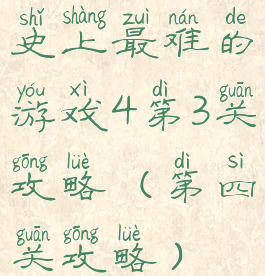 shǐ shàng zuì nán de
史上最难的
yóu xì dì guān
游戏4第3关
gōng lüè dì sì
攻略（第四
guān gōng lüè
关攻略）